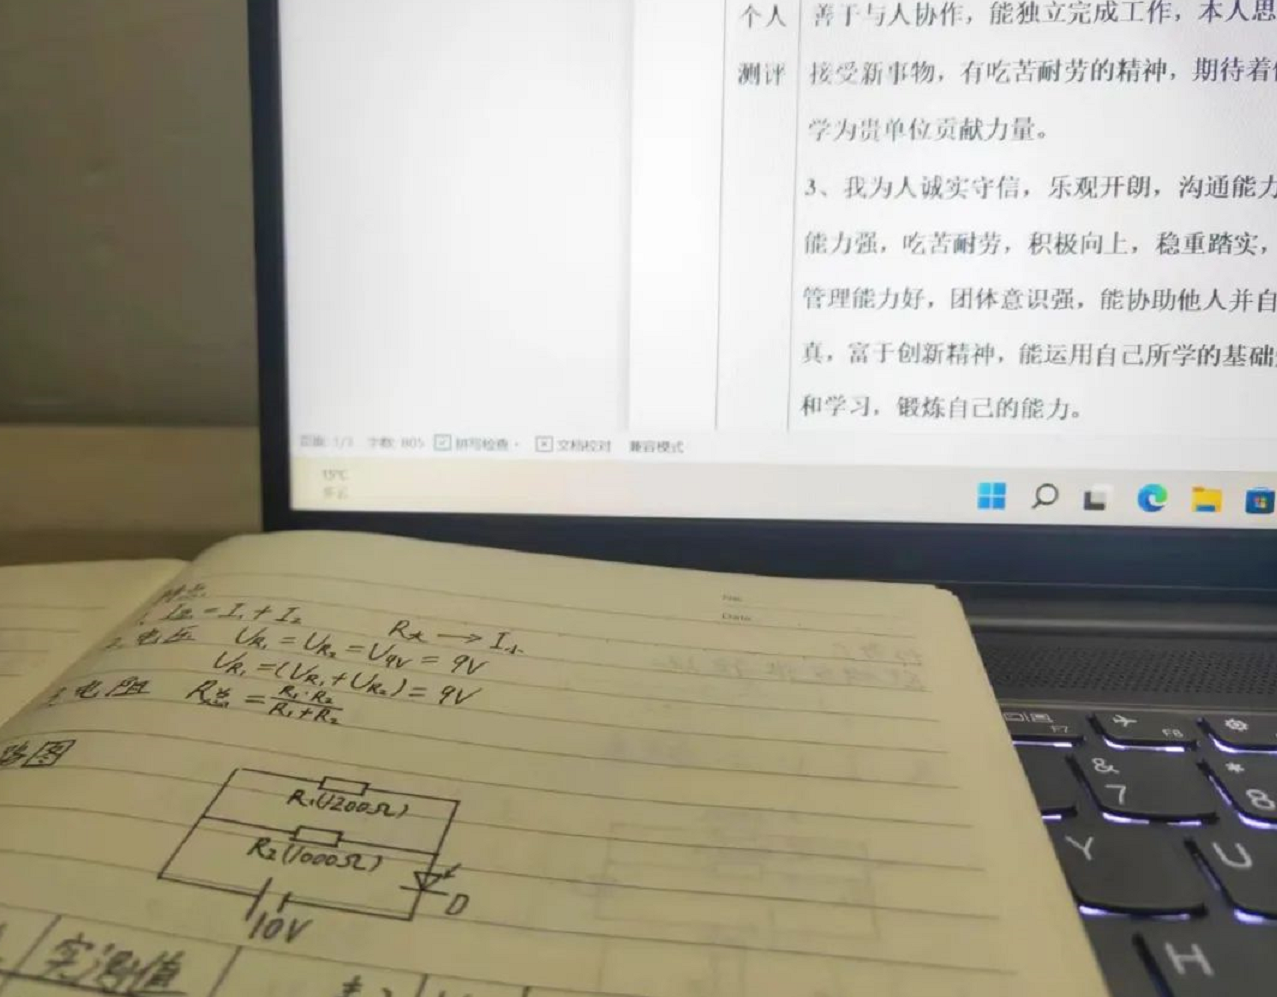 个人
测评
善于与人协作，能独立完成工作，本人思
接受新事物，有吃苦耐劳的精神，期待着
学为贵单位贡献力量。
3、我为人诚实守信，乐观开朗，沟通能力
能力强，吃苦耐劳，积极向上，稳重踏实，
管理能力好，团体意识强，能协助他人并自
真，富于创新精神，能运用自己所学的基础
和学习，锻炼自己的能力。
页面: 1/3 字数: 805 拼写检查 文档校对 兼容模式
15°C
多云
No.
Date
特点
1. I总=I₁+I₂ R大→I小
2. 电压 UR₁=UR₂=U9V=9V
UR₁=(UR₁+UR₂)=9V
3. 电阻 R总=R₁·R₂/R₁+R₂
路图
R₁(1200Ω)
R₂(1000Ω)
D
10V
实测值
F7 F8
& 7 * 8
Y U
H